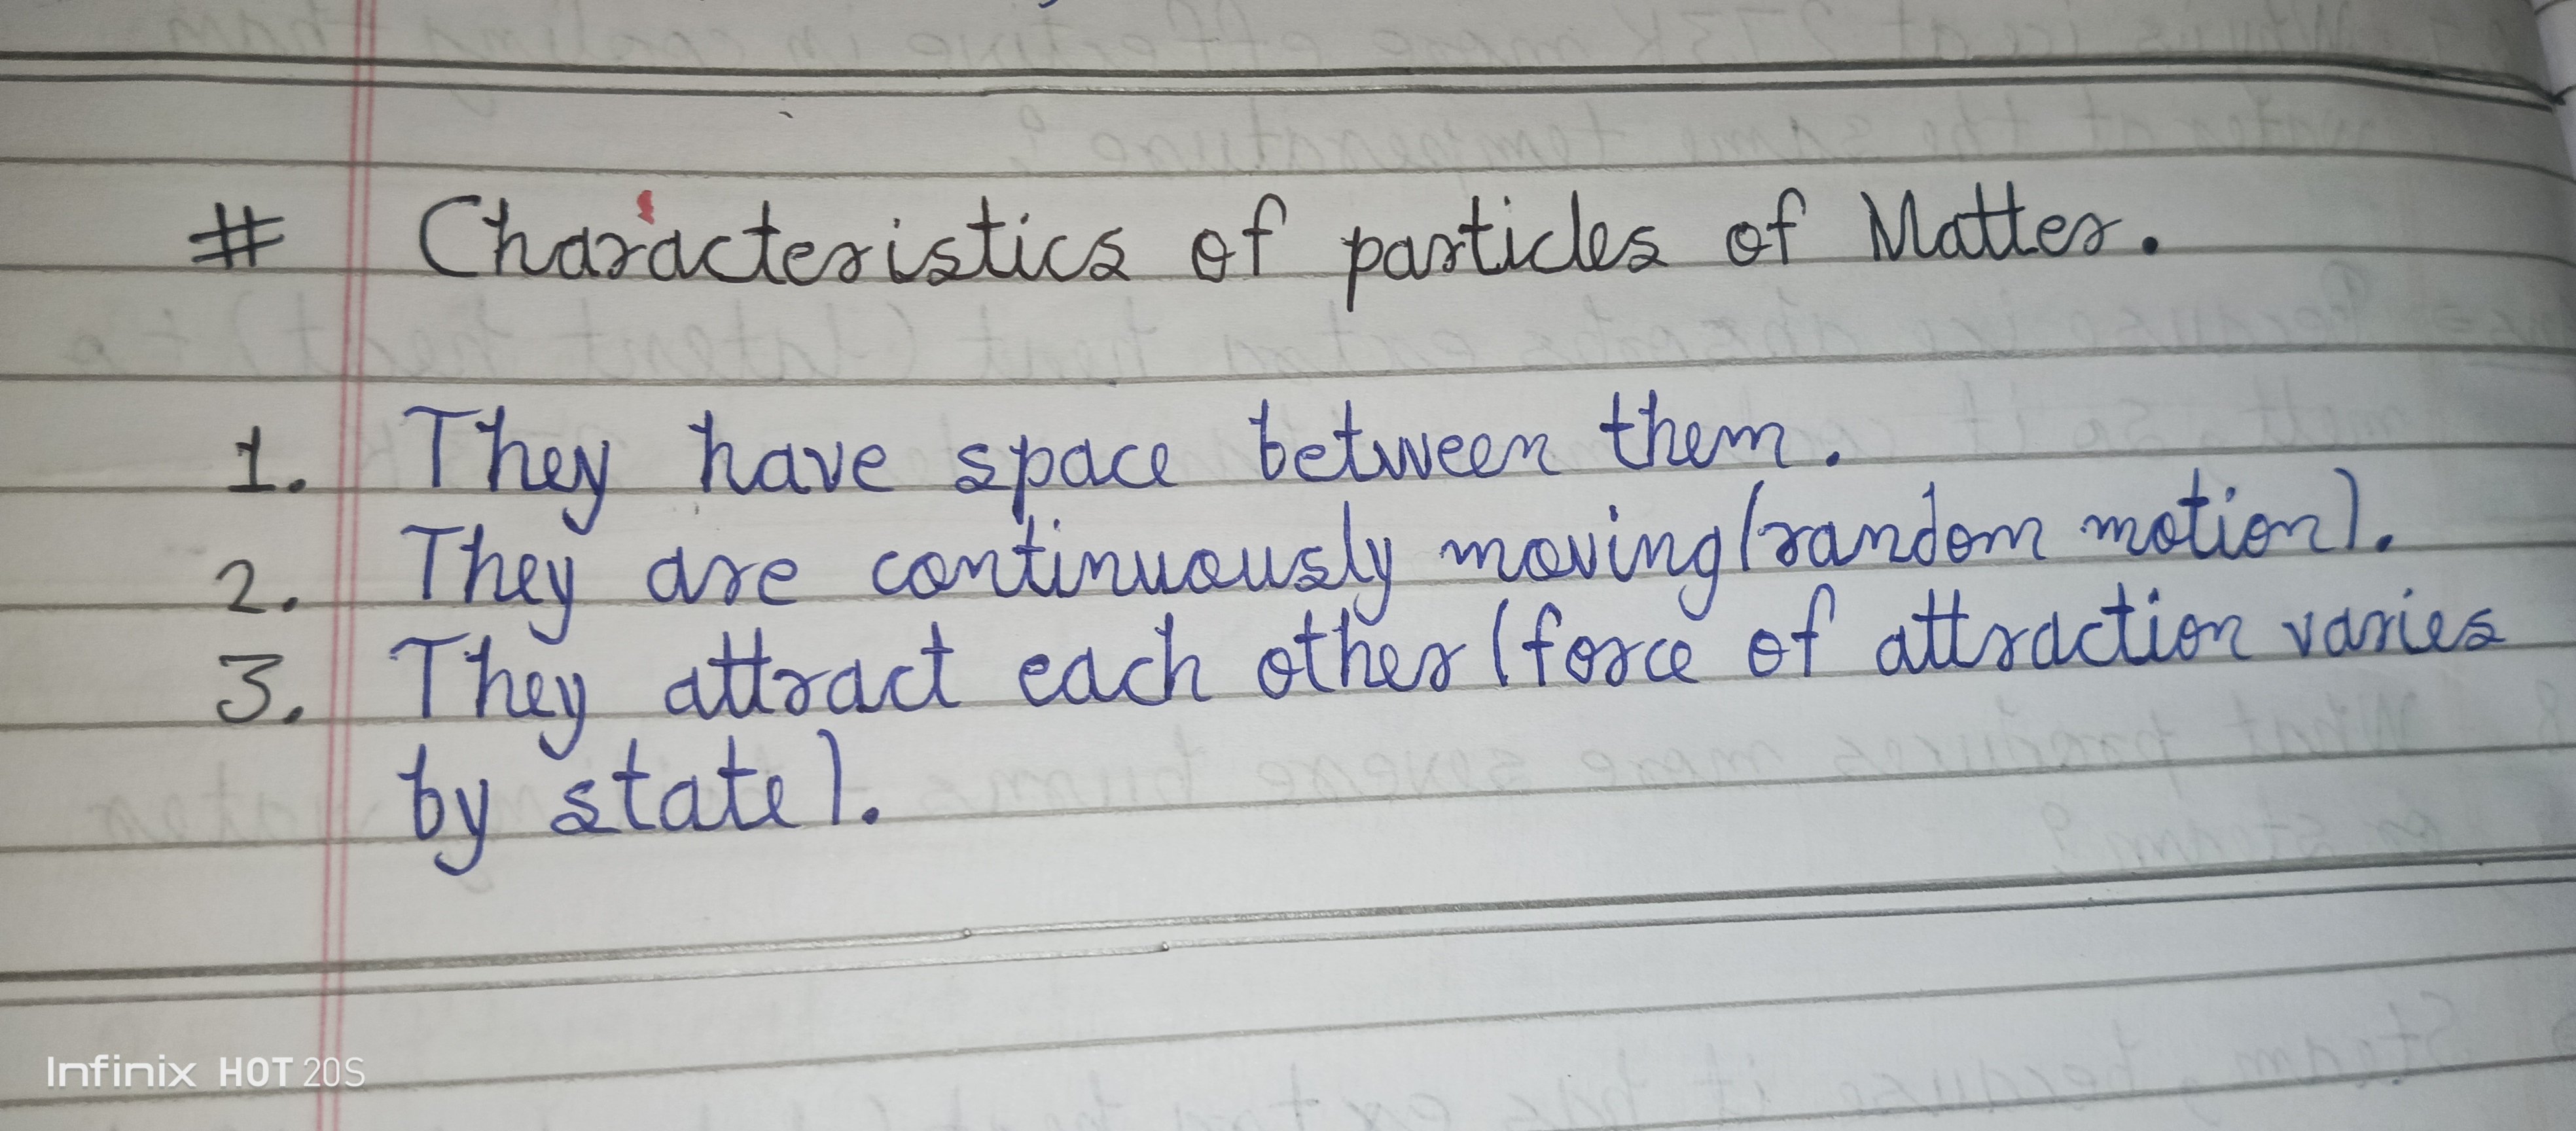 # Characteristics of particles of Matter.
1. They have space between them.
2. They are continuously moving (random motion).
3. They attract each other (force of attraction varies
by state).
Infinix HOT 20S